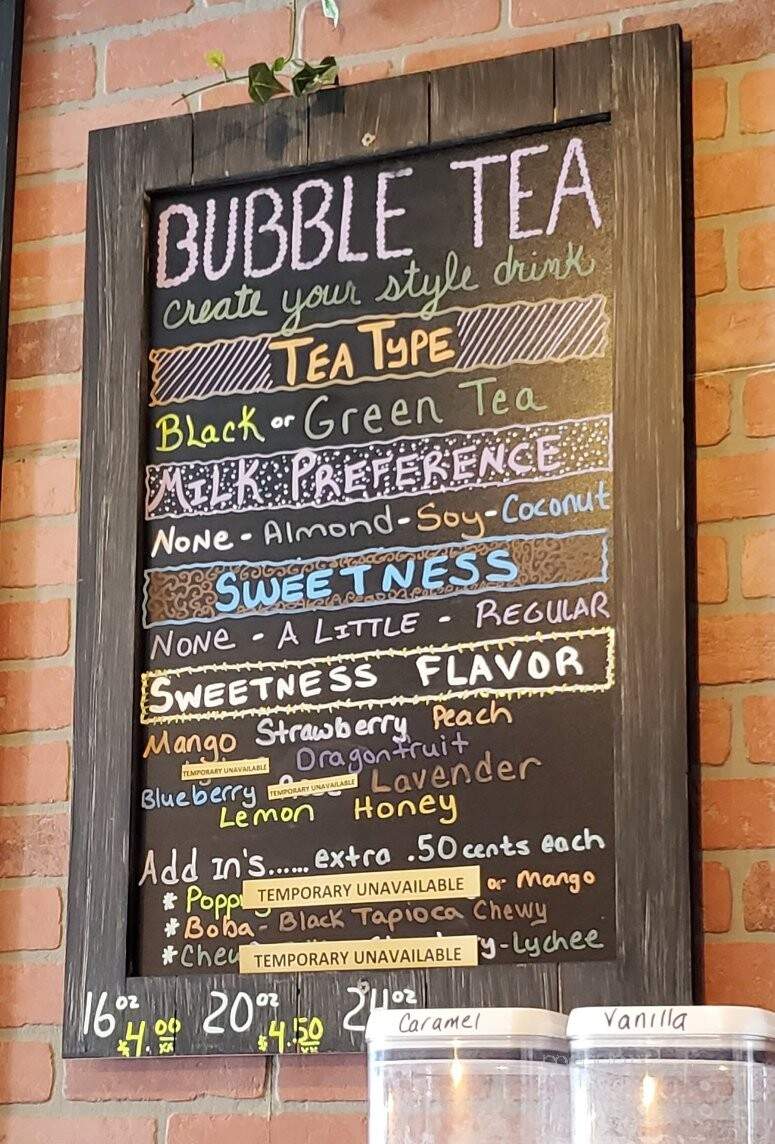 BUBBLE TEA
create your style drink
TEA TYPE
BLACK or Green Tea
MILK PREFERENCE
NONE - Almond - Soy - Coconut
SWEETNESS
NONE - A LITTLE - REGULAR
SWEETNESS FLAVOR
Mango Strawberry Peach
TEMPORARY UNAVAILABLE Dragonfruit
Blueberry TEMPORARY UNAVAILABLE Lavender
Lemon Honey
Add in's...... extra .50 cents each
* TEMPORARY UNAVAILABLE or Mango
* Boba - Black Tapioca Chewy
* TEMPORARY UNAVAILABLE - Lychee
16oz $4.00 20oz $4.50 24oz
Caramel
Vanilla